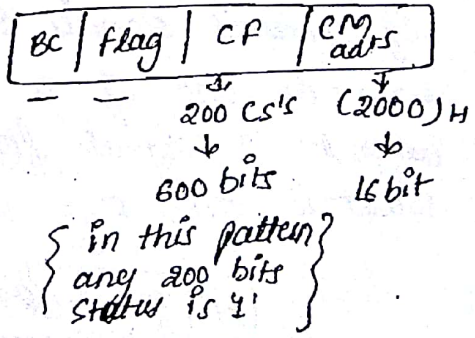 BC | Flag | CF | CM adrs
200 CS's (2000)H
600 bits 16 bit
{ in this pattern }
any 200 bits
status is '1'